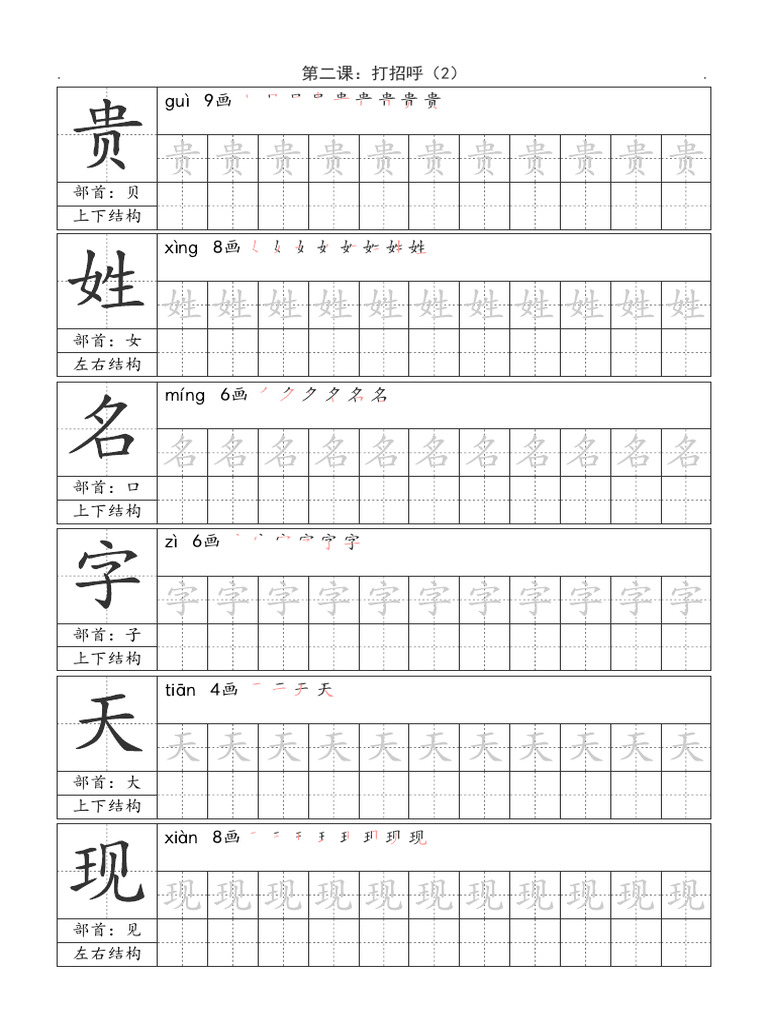 第二课：打招呼（2）
贵
guì 9画
贵 贵 贵 贵 贵 贵 贵 贵 贵 贵 贵
部首：贝
上下结构
姓
xìng 8画
姓 姓 姓 姓 姓 姓 姓 姓 姓 姓 姓
部首：女
左右结构
名
míng 6画
名 名 名 名 名 名 名 名 名 名 名
部首：口
上下结构
字
zì 6画
字 字 字 字 字 字 字 字 字 字 字
部首：子
上下结构
天
tiān 4画
天 天 天 天 天 天 天 天 天 天 天
部首：大
上下结构
现
xiàn 8画
现 现 现 现 现 现 现 现 现 现 现
部首：见
左右结构